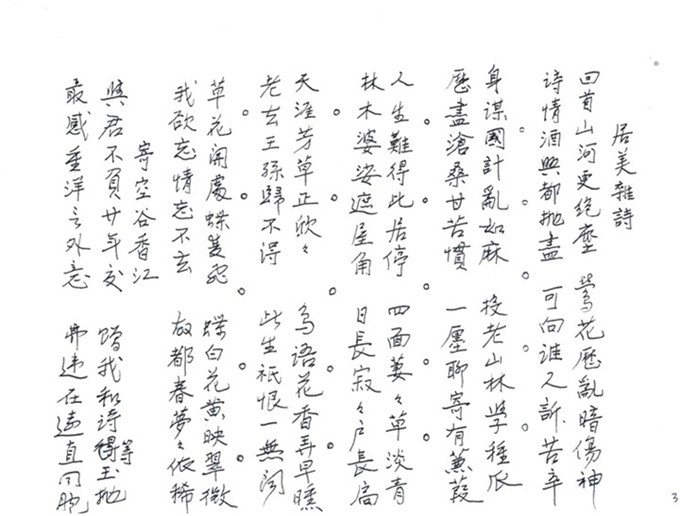 居美雜詩
回首山河更绝塵 鶯花歷亂暗傷神
诗情酒興都抛盡 可向谁人訴苦辛
身謀國計亂如麻 投老山林学種瓜
歷盡滄桑甘苦慣 一廛聊寄有蒹葭
人生難得此居停 四面萋々草淡青
林木婆娑遮屋角 日長寂々户長扃
天涯芳草正欣々 鸟語花香弄早曛
老去王孫歸不得 此生祇恨一無闻
草花開處蝶雙飛 蝶白花黄映翠微
我欲忘情忘不去 故都春夢々依稀
寄空谷香江
與君不負廿年交 我和诗得等玉抛
最感重洋言外 弗违在遠直同胞
3